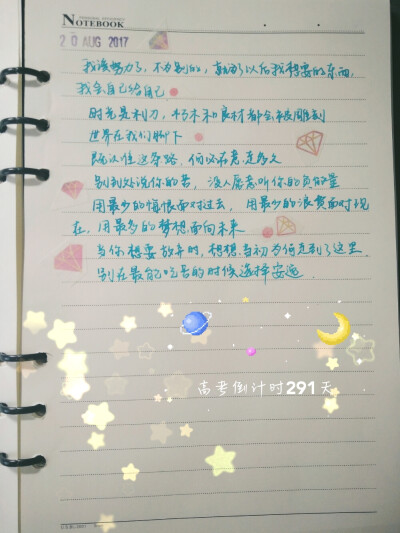 NOTEBOOK
20 AUG 2017
我该努力了，不为别的，就为了以后我想要的东西，
我会自己给自己
时光是利刀，朽木和良材都会被雕刻
世界在我们脚下
既认准这条路，何必在意走多久
别到处说你的苦，没人愿意听你的负能量
用最少的悔恨面对过去，用最少的浪费面对现
在，用最多的梦想面向未来
当你想要放弃时，想想当初为何走到了这里
别在最能吃苦的时候选择安逸
高考倒计时291天